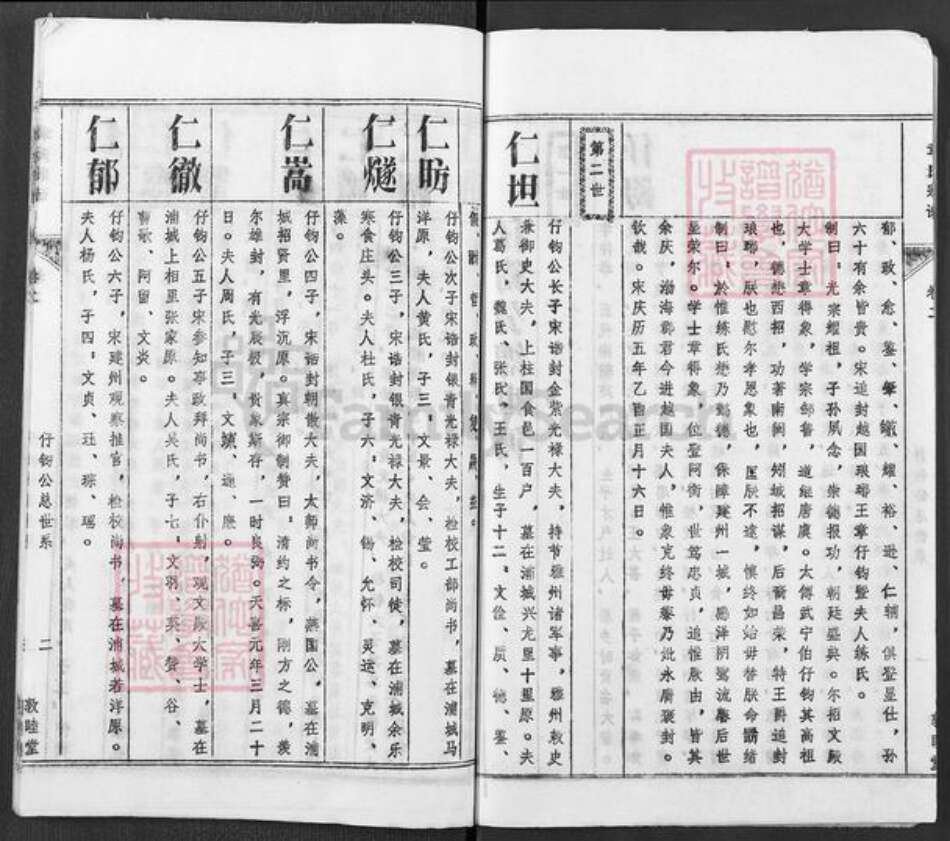 郁、政、愈、鉴、肇、辙、耀、裕、逊、仁辅，俱登显仕，孙
六十有余皆贵。宋追封越国琅琊王章仔钧暨夫人练氏。
制曰：光宗耀祖，子孙夙念，崇德报功，朝廷盛典。尔招文殿
大学士章得象，学宗邹鲁，道继唐虞。大傅武宁伯仔钧其高祖
也，德懋西招，功著南闽，列城招谋，后裔昌荣，特王爵追封
琅琊，朕也慰尔孝思象也，匡朕不逮，慎终如始毋替朕命
制曰：於惟练氏懋乃懿德，保障建州一城，恩泽阴骘流馨后世
显荣尔。学士章得象，位登阿衡，世笃忠贞，追惟厥由，皆其
余庆，渤海郡君今进越国夫人，惟象克终毋黍乃妣永膺褒封。
钦哉。宋庆历五年乙酉正月十六日。
第二世
仁坦
仔钧公长子宋诰封金紫光禄大夫，持节雅州诸军事，雅州敕史
兼御史大夫，上柱国食邑一百户，墓在浦城兴龙里十里原。夫
人葛氏，魏氏、张氏、王氏，生子十二：文俭、质、德、鉴、
仁昉
仔钧公次子宋诰封银青光禄大夫，检校工部尚书，墓在浦城马
洋原，夫人黄氏，子三：文景、会、莹。
仁燧
仔钧公三子，宋诰封银青光禄大夫，检校司徒，墓在浦城余乐
寒食庄头。夫人杜氏，子六：文济、锡、允怀、灵运、克明、
藻。
仁嵩
仔钧公四子，宋诰封朝散大夫，太师尚书令，燕国公，墓在浦
城招贤里，浮沉原。真宗御制赞曰：清约之标，刚方之德，羡
尔雄封，有光辰极，贵象斯存，一时良弼。天喜元年三月二十
日。夫人周氏，子三：文
仁徹
仔钧公五子宋参知事政拜尚书，右仆射，观文殿大学士，墓在
浦城上相里张家原。夫人吴氏，子七：文羽、英、赞、谷、
歌、阿留、文炎。
仁郁
仔钧公六子，宋建州观察推官，检校尚书，墓在浦城若洋原。
夫人杨氏，子四：文贞、珏、琮、瑶。
仔钧公总世系
二
敦睦堂
卷二
FamilySearch